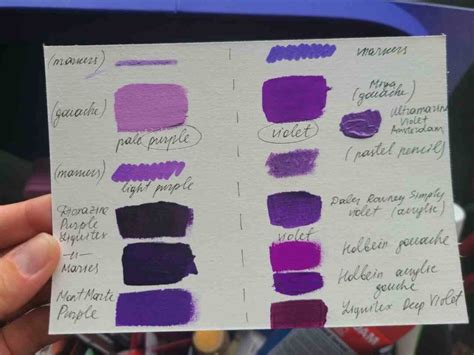 (markers)
(gouache)
pale purple
(markers)
light purple
Dioxazine
Purple
Liquitex
-"-
Marses
Mont Marte
Purple
markers
(gouache)
violet
Ultramarine
Violet
Amsterdam
(pastel pencil)
Daler Rowney Simply
violet (acrylic)
violet
Holbein gouache
Holbein acrylic
gouache
Liquitex Deep Violet